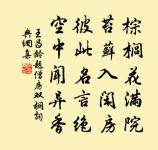 棕榈花满院
苔藓入闲房
彼此名言绝
空中闻异香
王昌龄题僧房双桐词
典姻集